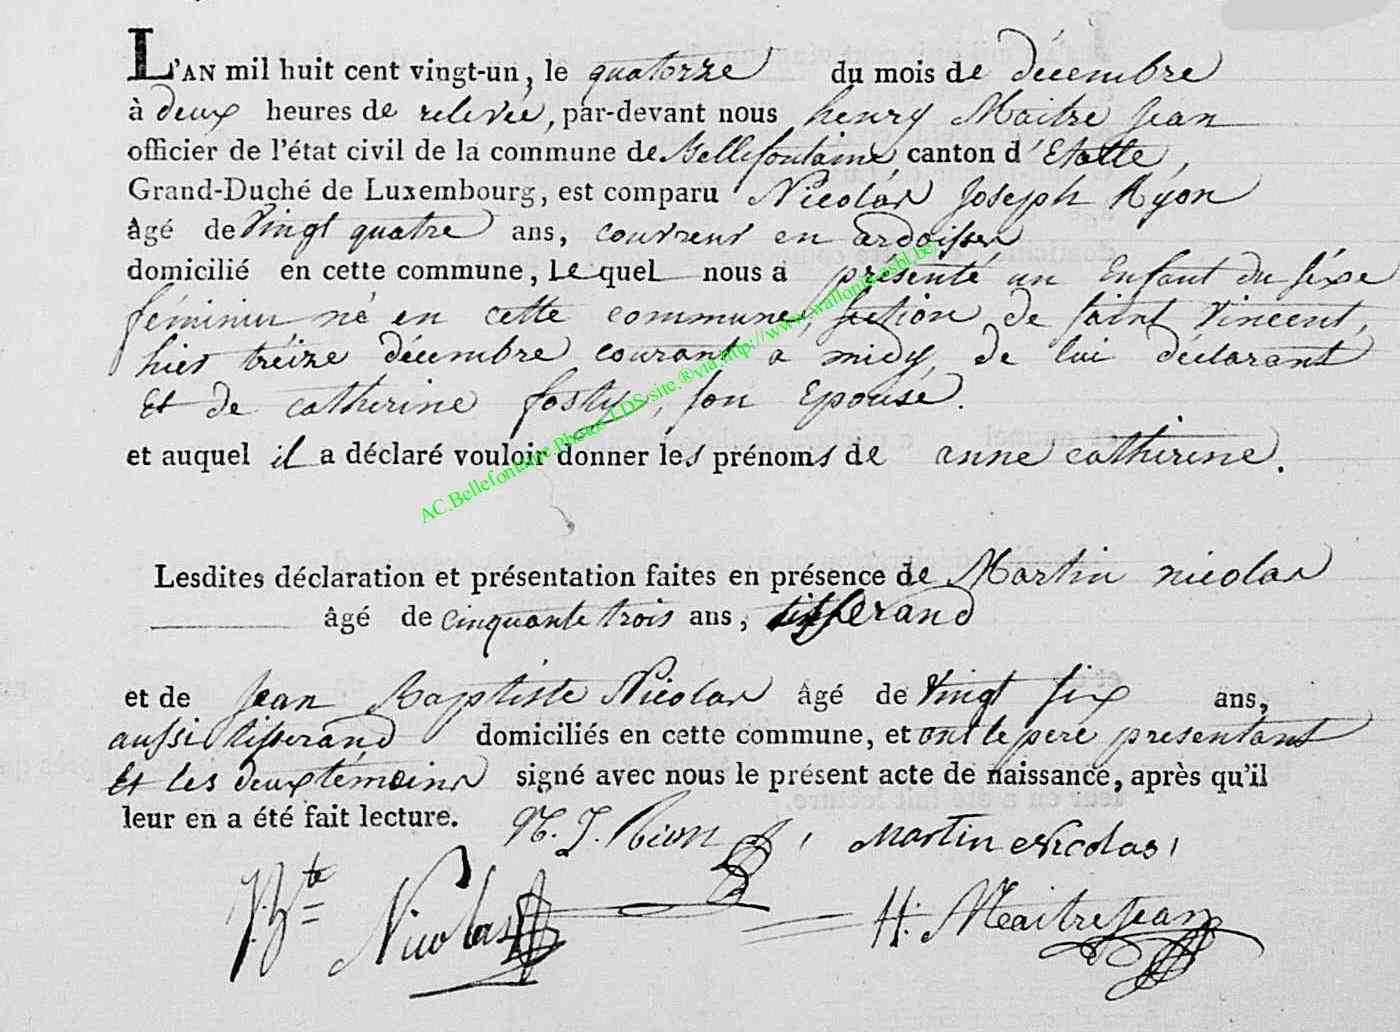 L'AN mil huit cent vingt-un, le quatorze du mois de décembre
à deux heures de relevée, par-devant nous henry Maitre Jean
officier de l'état civil de la commune de Bellefontaine canton d'Etalle,
Grand-Duché de Luxembourg, est comparu Nicolas Joseph Ryon
âgé de vingt quatre ans, couvreur en ardoisses
domicilié en cette commune, Lequel nous a présenté un Enfant du séxe
féminin né en cette commune, section de saint Vincent,
hier tréize décembre courant a midy de lui déclarant
Et de catherine fosty, son Epouse.
et auquel il a déclaré vouloir donner les prénoms de anne catherine.
AC.Bellefontaine.Photos LDS-site.®via http://www.wallonica.asbl.be/
Lesdites déclaration et présentation faites en présence de Martin nicolas
âgé de cinquante trois ans, tisserand
et de Jean Baptiste Nicolas âgé de vingt six ans,
aussi tisserand domiciliés en cette commune, et ont le pere presentant
Et les deux témoins signé avec nous le présent acte de naissance, après qu'il
leur en a été fait lecture. N. J. Rion, Martin Nicolas,
J. Bte Nicolas H. Maitrejean